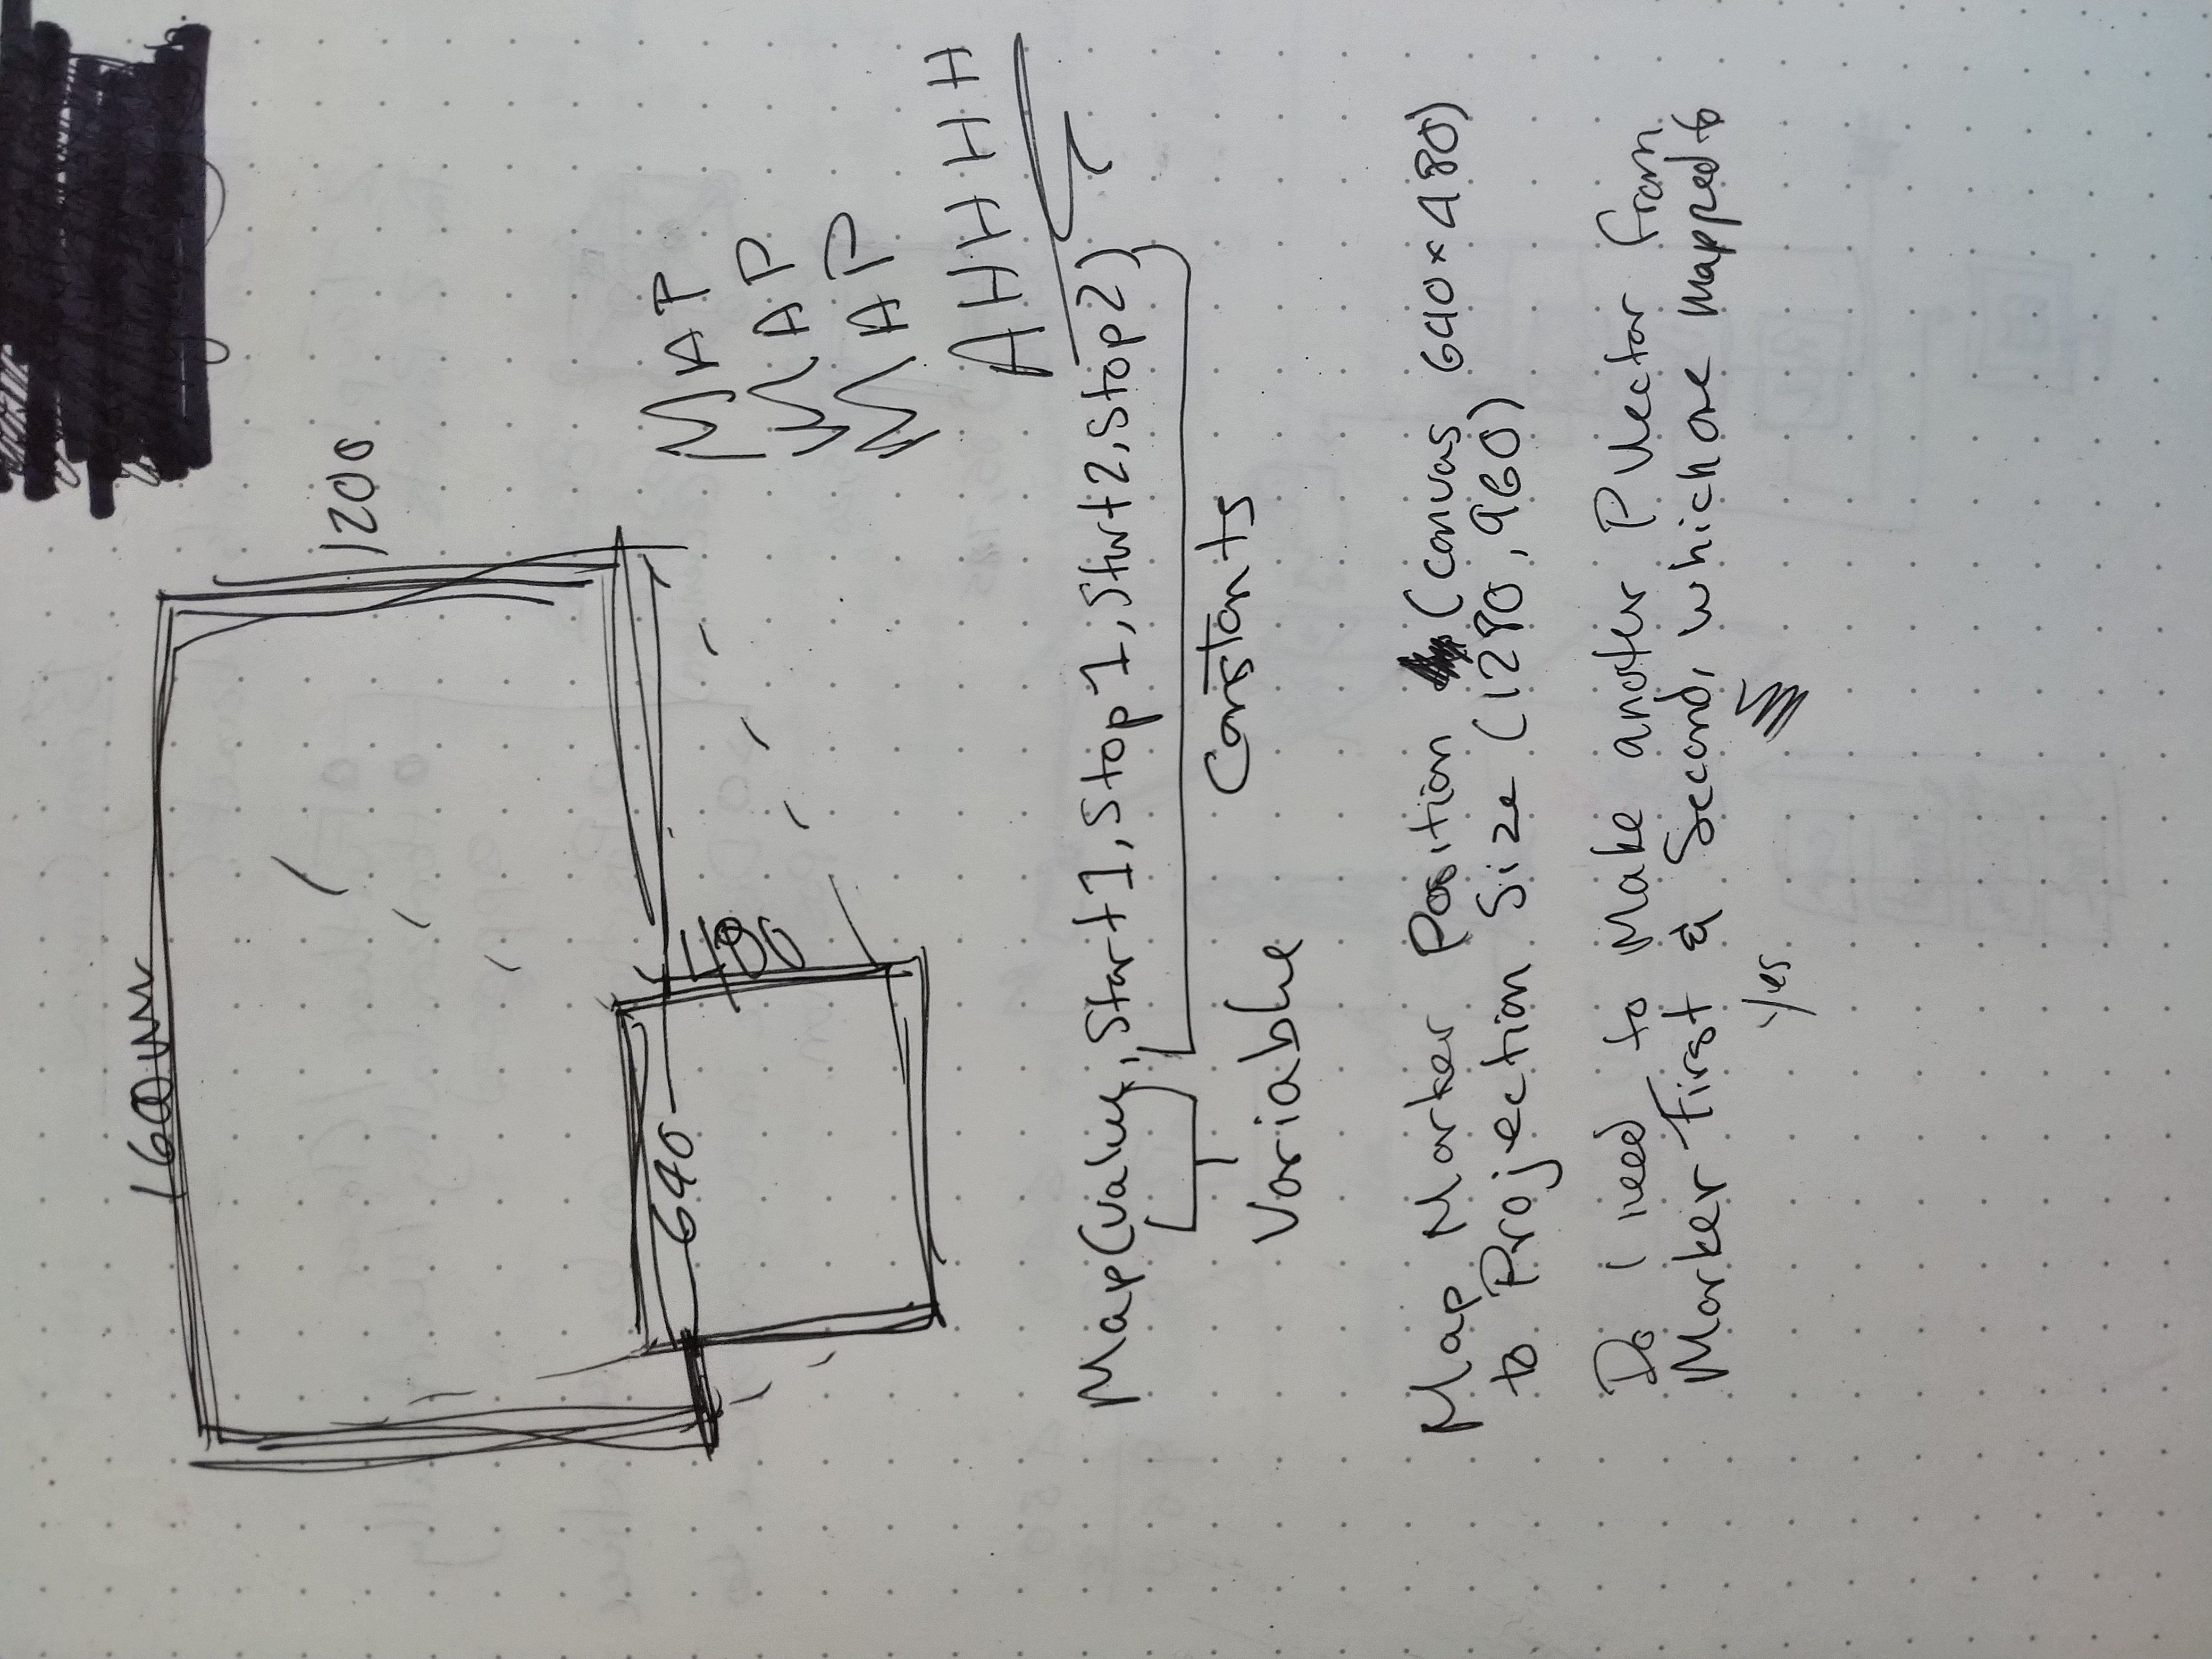 1600mm
1200
640
MAP
MAP
MAP
AHHHH
Map(value, Start1, Stop1, Start2, Stop2)
Variable
Constants
Map Marker Position (canvas 640×480)
to Projection Size (1280, 960)
Do I need to Make another PVector from
Marker First & Second, which are mapped to
Yes